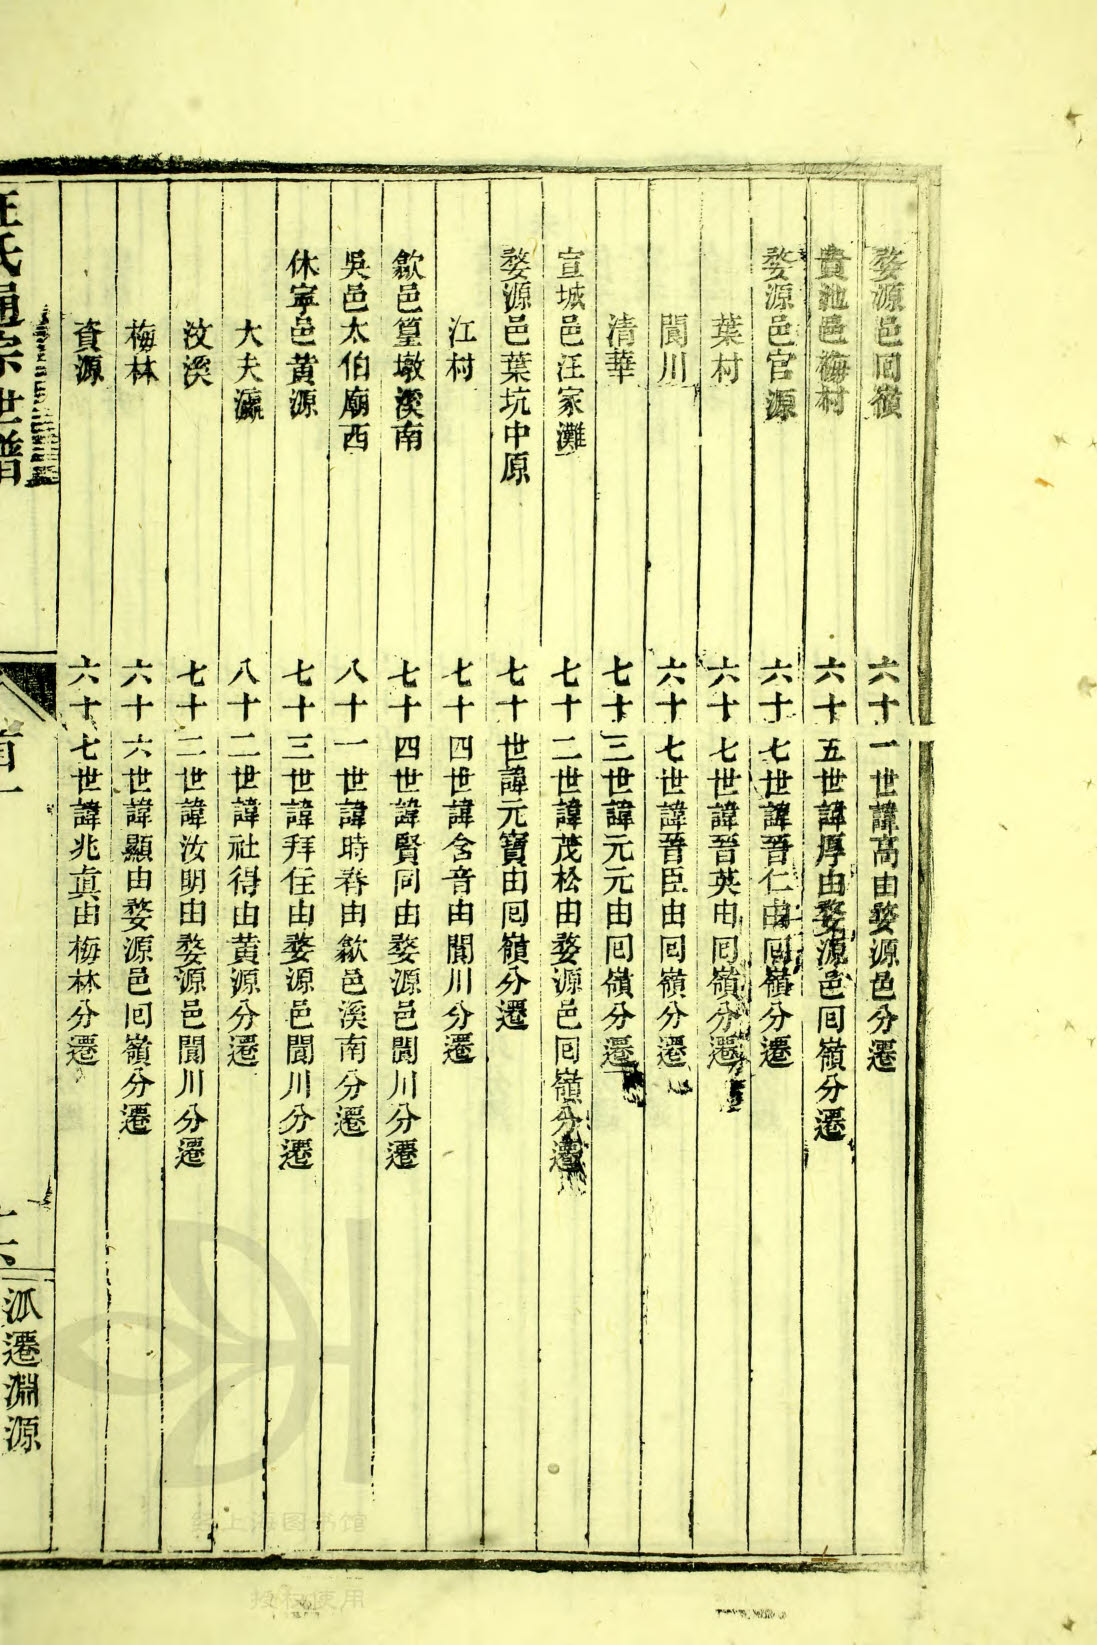 婺源邑囘嶺 六十一世諱高由婺源邑分遷
貴池邑梅村 六十五世諱厚由婺源邑囘嶺分遷
婺源邑官源 六十七世諱晉仁由囘嶺分遷
葉村 六十七世諱晉英由囘嶺分遷
閬川 六十七世諱晉臣由囘嶺分遷
清華 七十三世諱元元由囘嶺分遷
宣城邑汪家灘 七十二世諱茂松由婺源邑囘嶺分遷
婺源邑葉坑中原 七十世諱元寶由囘嶺分遷
江村 七十四世諱含音由閬川分遷
歙邑篁墩溪南 七十四世諱賢同由婺源邑閬川分遷
吳邑太伯廟西 八十一世諱時春由歙邑溪南分遷
休寧邑黄源 七十三世諱拜住由婺源邑閬川分遷
大夫瀛 八十二世諱社得由黄源分遷
汶溪 七十二世諱汝明由婺源邑閬川分遷
梅林 六十六世諱顯由婺源邑囘嶺分遷
資源 六十七世諱兆真由梅林分遷
汪氏通宗世譜 首一 泒遷淵源
经上海图书馆
授权使用